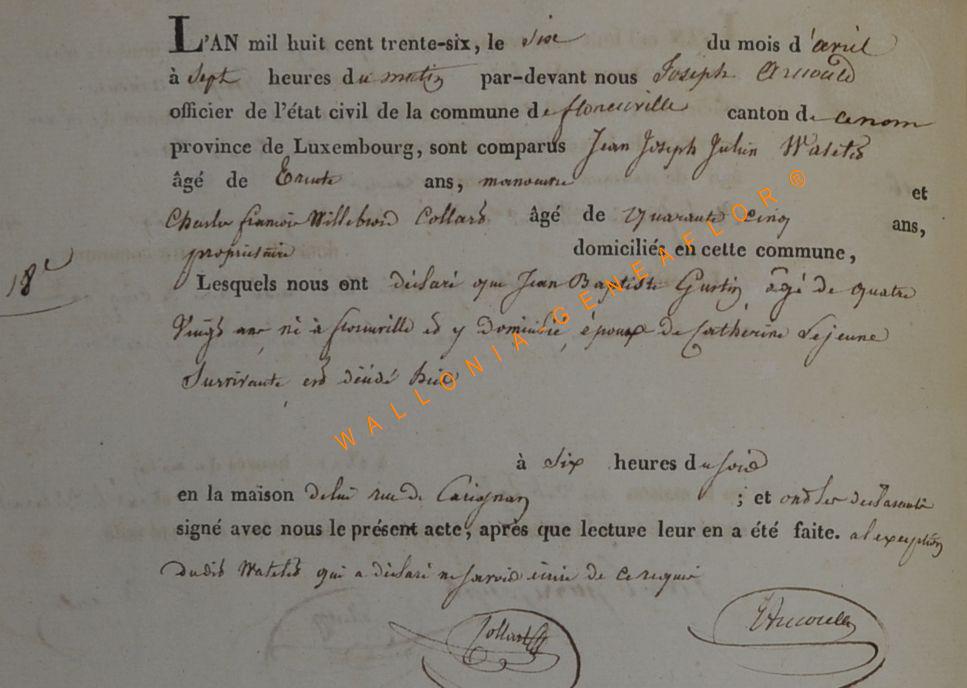 L'AN mil huit cent trente-six, le six du mois d'avril
à sept heures du matin par-devant nous Joseph Arnould
officier de l'état civil de la commune de florenville canton de
province de Luxembourg, sont comparus Jean Joseph Julien Watelet
âgé de Trente ans, manoeuvre et
Charles françois Willebrord Collard âgé de quarante cinq ans,
propriétaire domiciliés en cette commune,
18e
Lesquels nous ont déclaré que Jean Baptiste Gustin, âgé de quatre
Vingts ans né à florenville et y domicilié, époux de Catherine Lejeune
Survivante est décédé hier
à six heures du soir
en la maison de lui rue de Carignan ; et ont les déclarants
signé avec nous le présent acte, après que lecture leur en a été faite. a l'exception
dudit Watelet qui a déclaré ne savoir écrire de ce requis
Collard
JArnould
WALLONIA-GENEAFLOR®